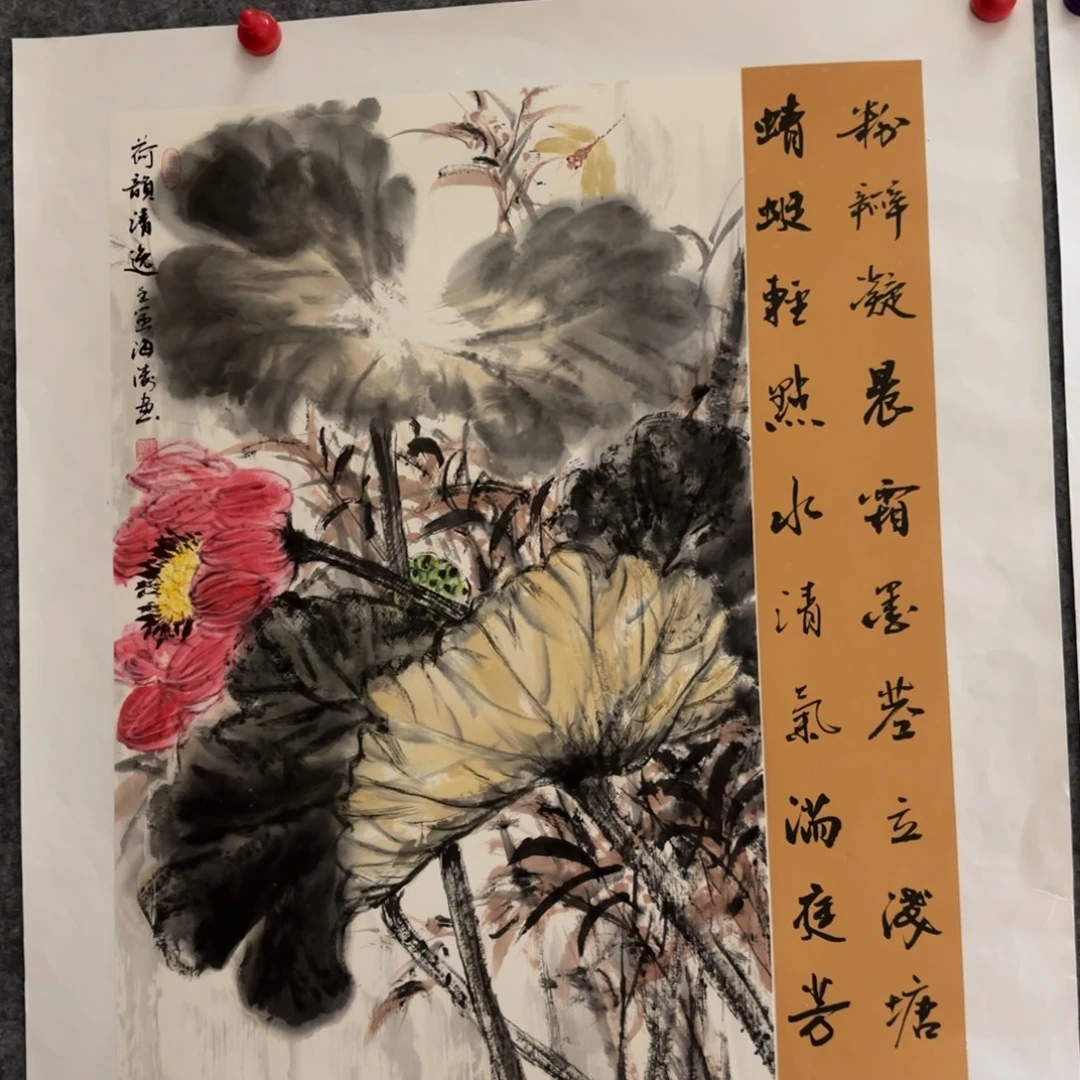 粉瓣凝晨霜墨莖立淺塘
蜻蜓輕點水清氣滿庭芳
荷韻清逸 壬寅海濤畫